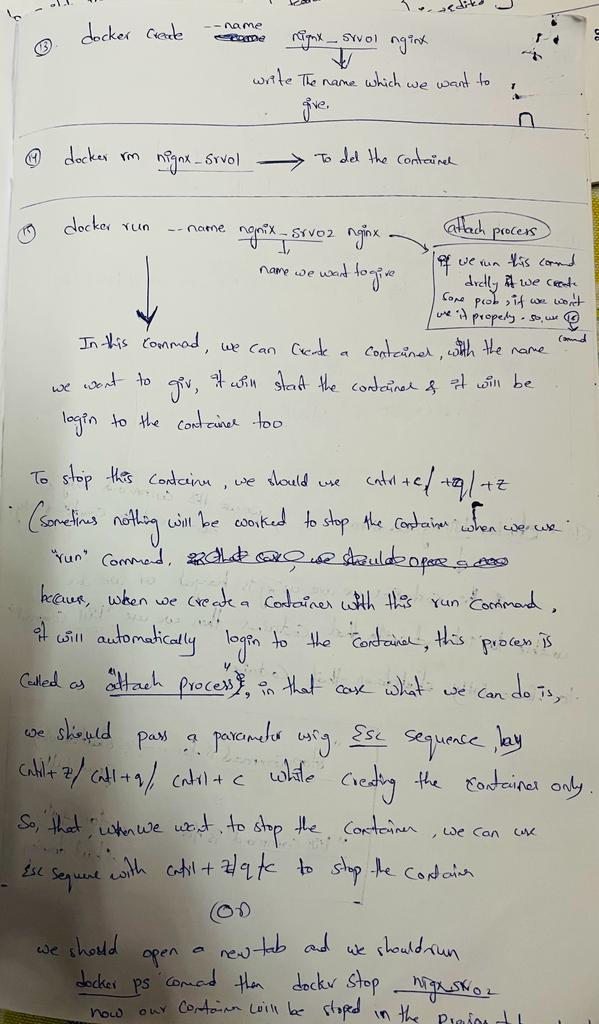 13) docker create --name nignx_srv01 nginx
write The name which we want to
give.
14) docker rm nignx_srv01 → To del the container
15) docker run --name ngnix_srv02 nginx
attach process
name we want to give
If we run this commd
drctly it we create
some prob, if we won't
use it properly. so, use 16
comnd
In this commad, we can create a container, with the name
we want to giv, it will start the container & it will be
login to the container too
To stop this container, we should use cntrl+c/ +q/ +z
(sometimes nothing will be worked to stop the container when we use
"run" commad,
because, when we create a container with this run command,
it will automatically login to the container, this process is
called as "attach process"), in that case what we can do is,
we should pass a parameter usig Esc sequence, key
cntrl+z/ cntl+q/, cntrl+c while creating the container only.
So, that, when we want to stop the container, we can use
Esc sequence with cntrl+z/q/c to stop the contain
(Or)
we should open a new tab and we should run
docker ps comad then docker stop nigx_srv02
now our contain will be stoped in the